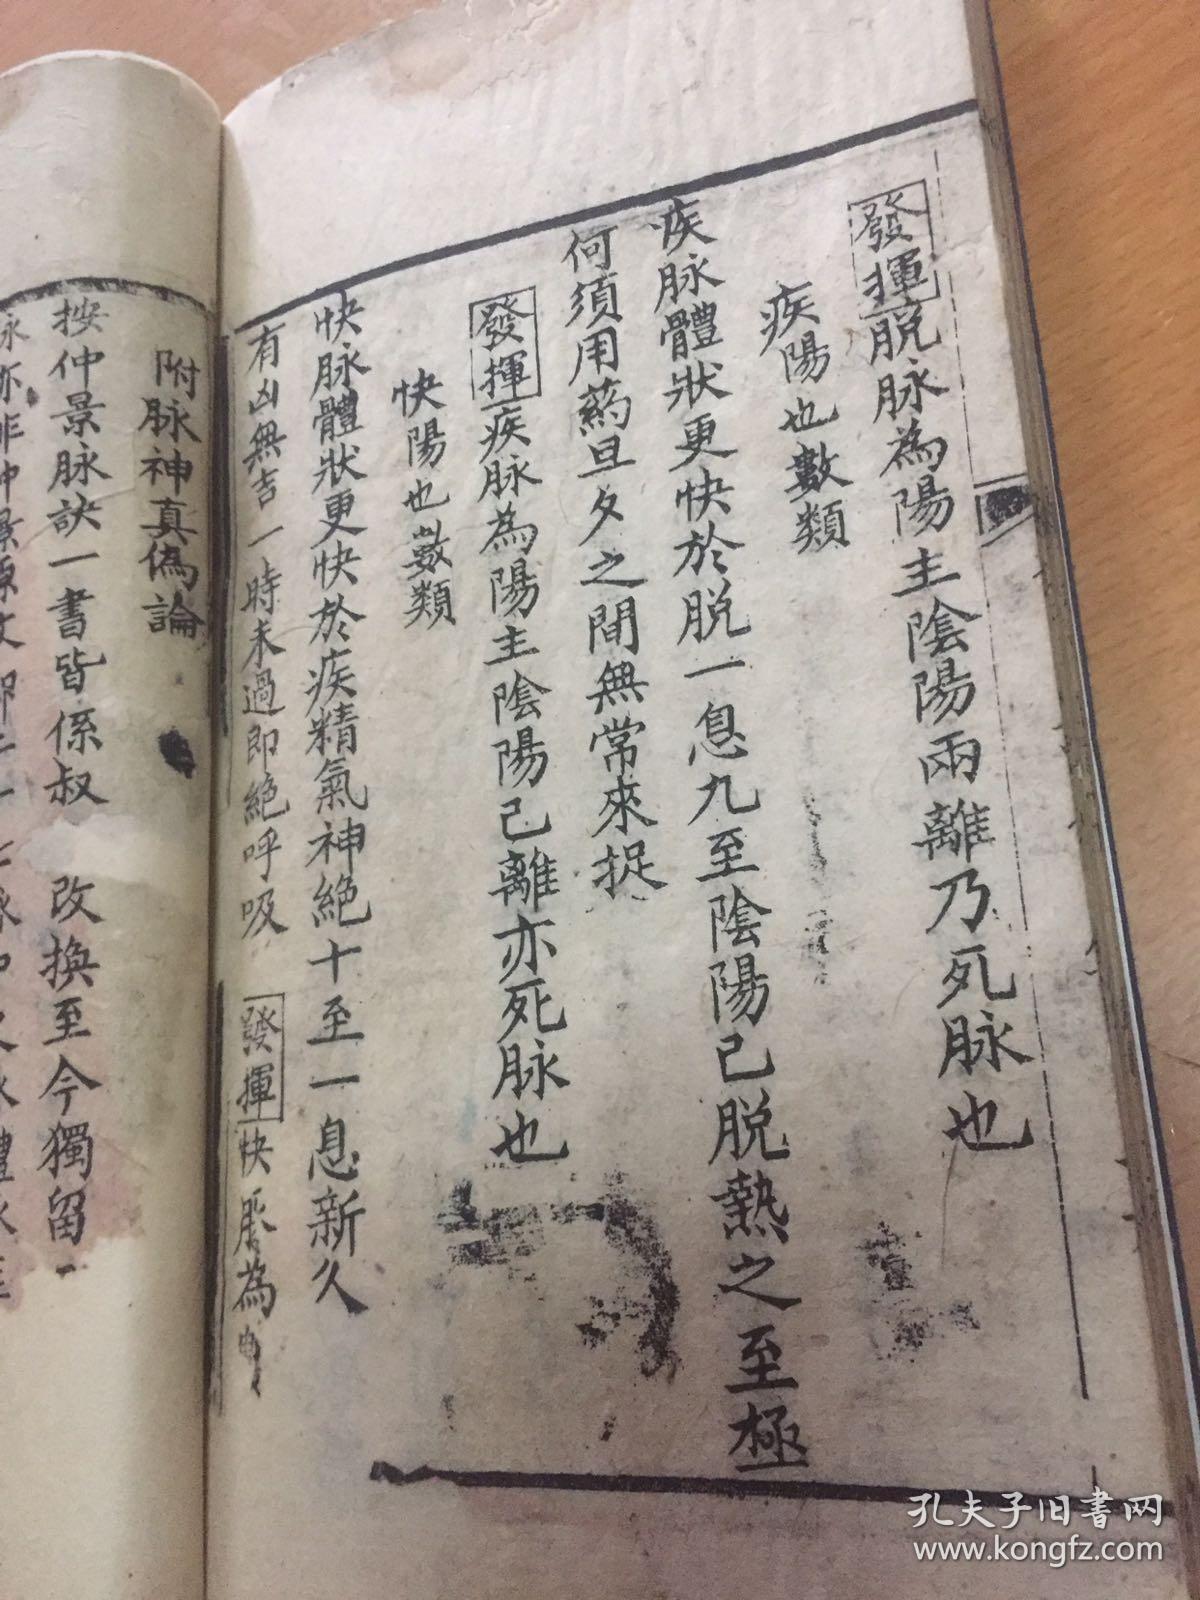 發揮脱脉為陽主陰陽兩離乃死脉也
疾陽也數類
疾脉體狀更快於脱一息九至陰陽己脱熱之至極
何須用藥旦夕之間無常來捉
發揮疾脉為陽主陰陽己離亦死脉也
快陽也數類
快脉體狀更快於疾精氣神絶十至一息新久
有凶無吉一時未過即絶呼吸 發揮快脈為
附脉神真偽論
按仲景脉訣一書皆係叔 改換至今獨留
脉亦非仲景原文即二十七脉
孔夫子旧书网
www.kongfz.com